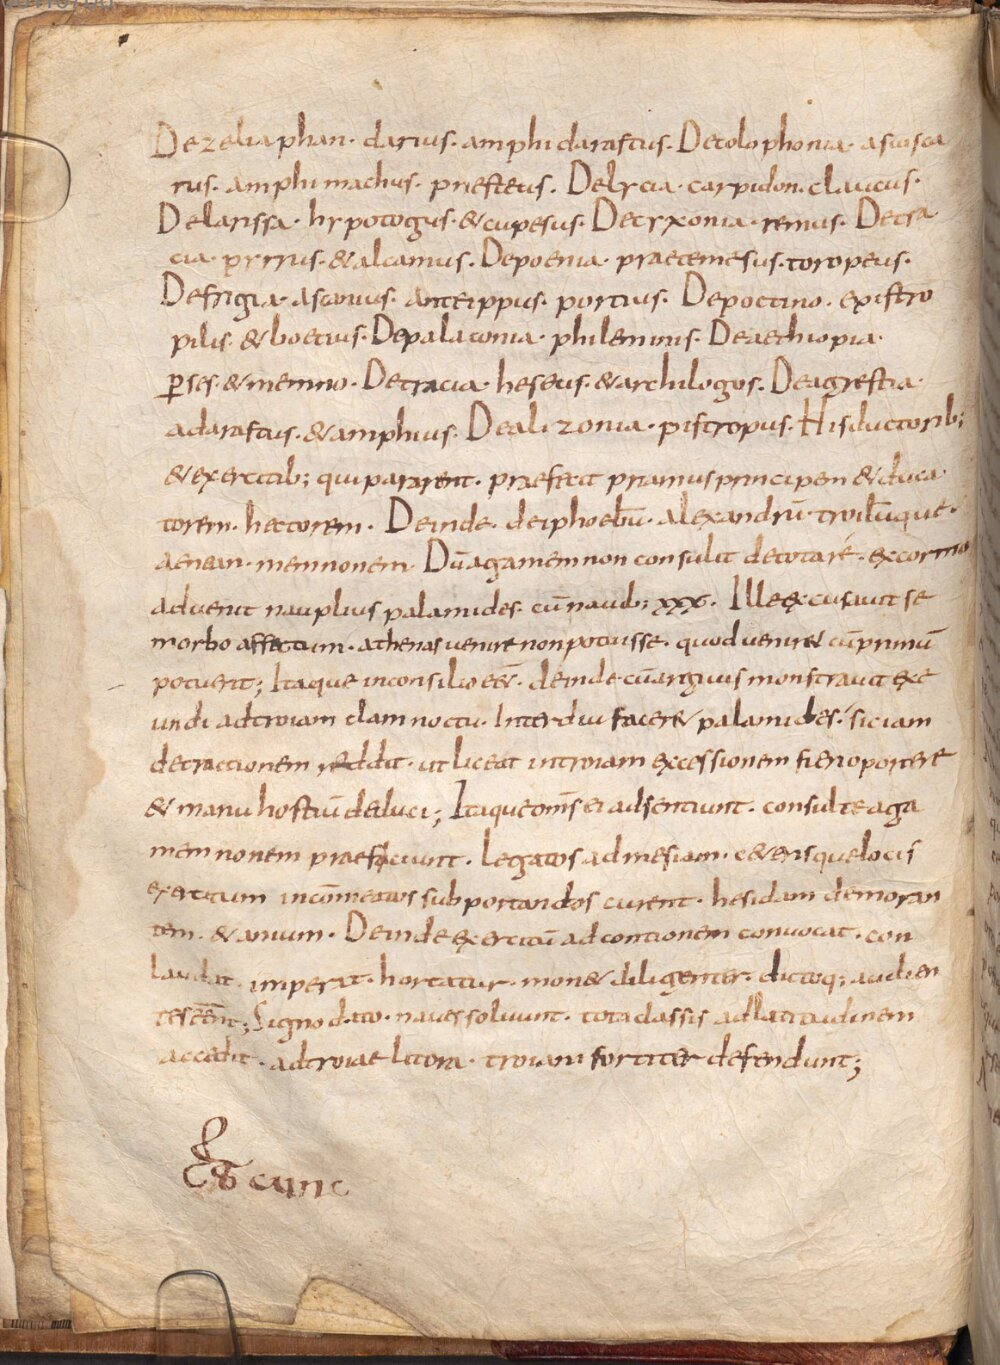 Dezeliaphan· darius· amphidarastus· Decolophonia· asiosca
rus· amphimachus· priesteus· Delycia· carpidon· claucus·
Delarissa· hypotogus· & cupesus· Decyxonia· remus· Detra
cia· pyrrus· & alcamus· Depoenia· praetemesus· toropeus·
Defrigia· asanius· anteippus· portius· Depoctino· existro
pilis· & boetius· Depalatonia· philemims· Deaethiopia·
ꝑses· & memno· Detracia· heseus· & archilogus· Deagrestia·
adarastus· & amphius· Dealizonia· pistropus· Hisductorib;
& exercitib; quipararent· praefecit priamusprincipem & duca
torem· hectorem· Deinde· deiphoebū· alexandrū· troilūque·
aenean· memnonem· Dūagamemnon consulit detotaré· excormo
aduenit nauplius palamides· cūnauib; xxx· Illeexcusauit se
morbo affectum· athenasuenirenonpotuisse· quoduenir& cūprimū
potuerit; Itaque inconsilio eē· deinde cūarguiis monstrauit exe
undi adtroiam clamnoctu· Interdiu facer& palamides· siciam
detractionem reddit· utliceat introiam excessionem fierioportere
& manu hostiū deluci; Itaqueomīs ei adsentiunt· consulteaga
memnonem praeficiunt· Legatos admesiam· c&erisquelocis
exercitum incōmeatos subportandos curent· hesidam demoran
tem· & anium· Deindeexercitū adcontionem conuocat· con
laudat· imperat· hortatur· mon& diligenter· dictoq; audien
tesēēnt; Signodato· nauessoluunt· totaclassis adlatitudinem
accedit· adtroiae litora· troiani fortiter defendunt;